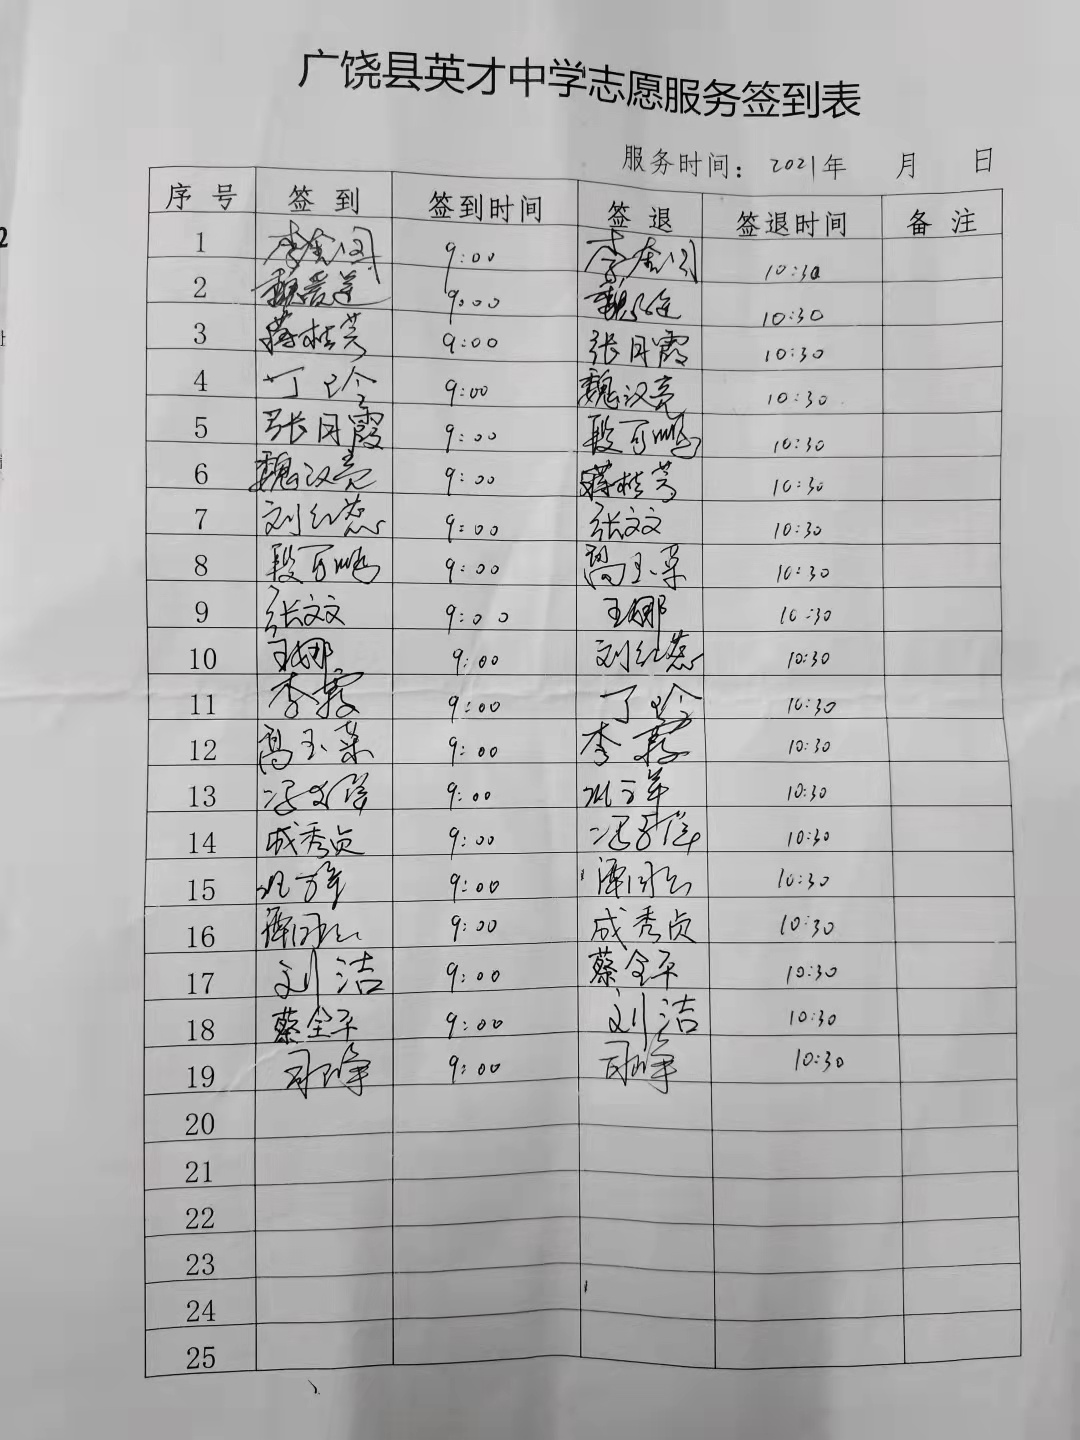 广饶县英才中学志愿服务签到表
服务时间：2021年 月 日
序号 签到 签到时间 签退 签退时间 备注
1 9:00 10:30
2 9:00 10:30
3 蒋桂芳 9:00 张月霞 10:30
4 丁珍 9:00 魏汉亮 10:30
5 张月霞 9:00 段可鹏 10:30
6 魏汉亮 9:00 蒋桂芳 10:30
7 刘红蕊 9:00 张文文 10:30
8 段可鹏 9:00 高玉荣 10:30
9 张文文 9:00 王娜 10:30
10 王娜 9:00 刘红蕊 10:30
11 李霞 9:00 丁珍 10:30
12 高玉荣 9:00 李霞 10:30
13 9:00 10:30
14 成秀贞 9:00 10:30
15 9:00 10:30
16 9:00 成秀贞 10:30
17 刘洁 9:00 蔡全平 10:30
18 蔡全平 9:00 刘洁 10:30
19 9:00 10:30
20
21
22
23
24
25